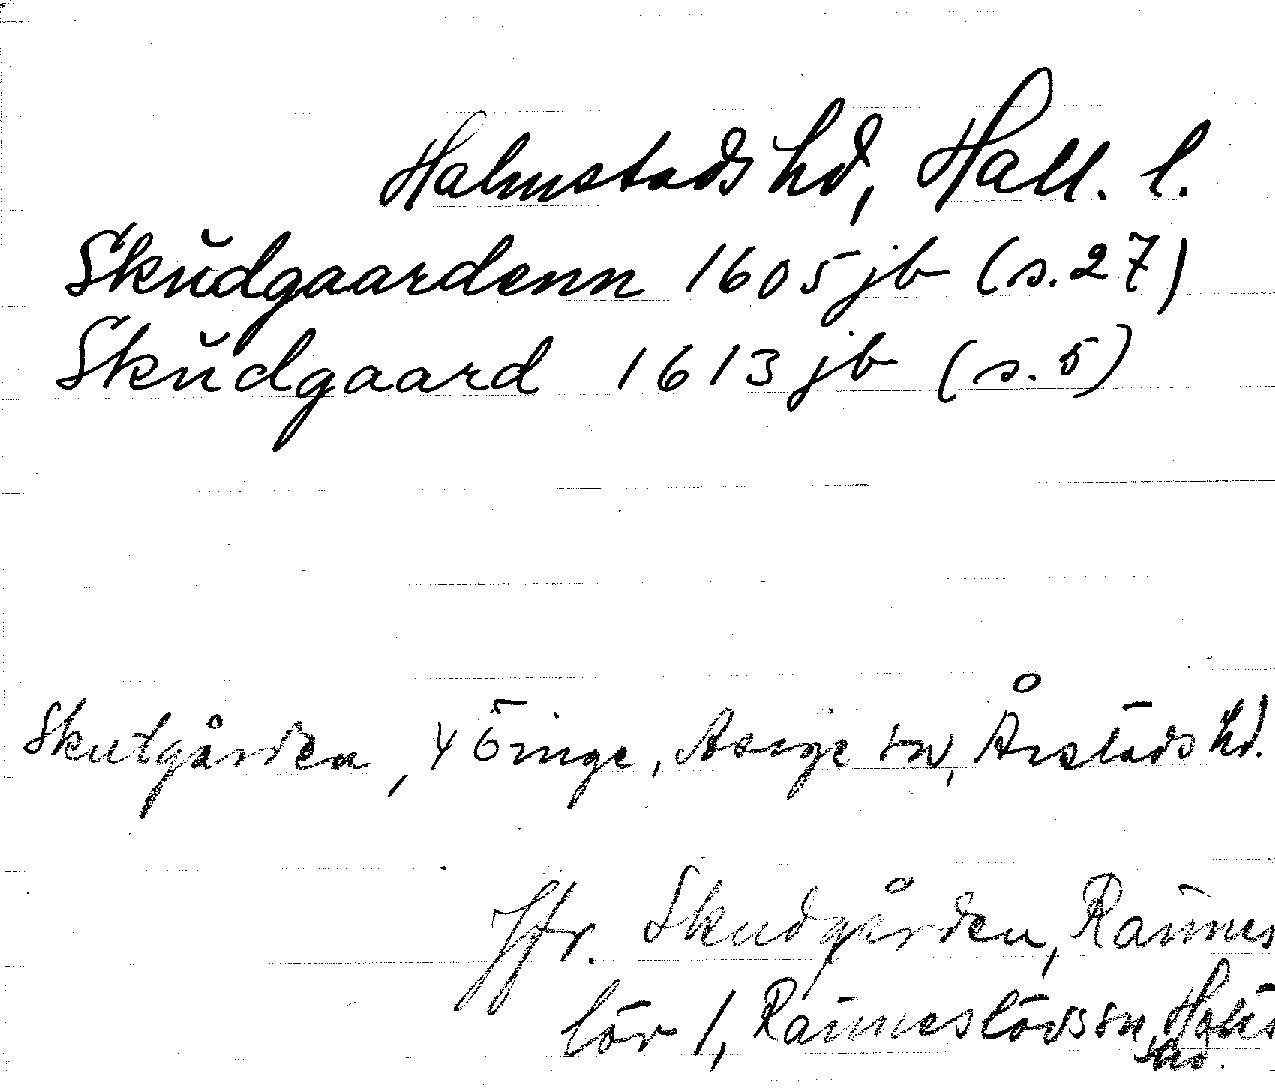 Halmstads hd, Hall. l.
Skŭdgaardenn 1605 jb (s.27)
Skŭdgaard 1613 jb (s.5)
Skutgården, 4 Öinge, Asige sn, Årstads hd.
Jfr. Skudgården, Rannes
löv 1, Ranneslövs sn,